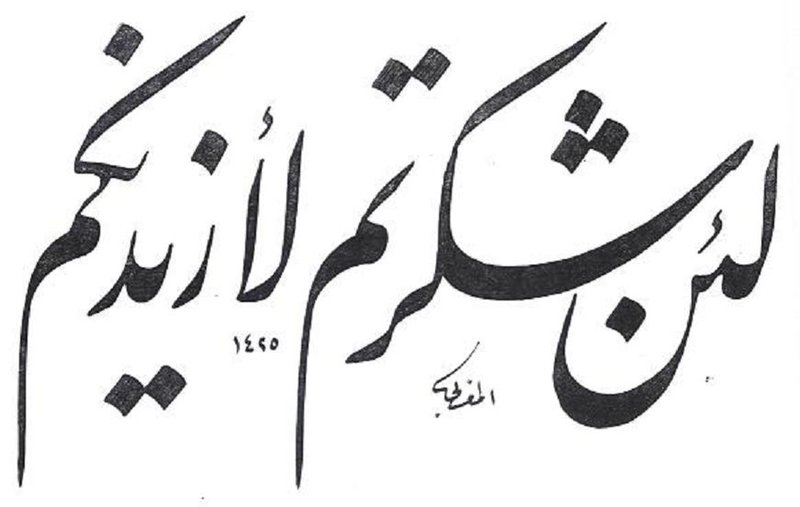 لئن شكرتم لأزيدنكم
١٤٢٥